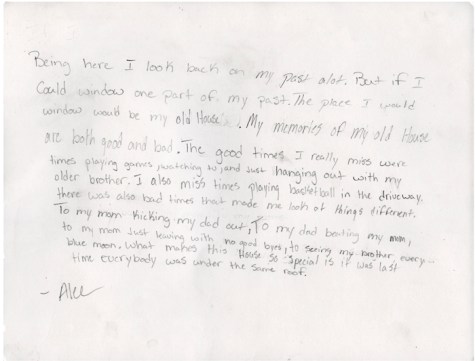 Being here I look back on my past alot. But if I
Could window one part of my past. The place I would
window would be my old House. My memories of my old House
are both good and bad. The good times I really miss were
times playing games, watching tv, and just hanging out with my
older brother. I also miss times playing basketball in the driveway.
there was also bad times that made me look at things different.
To my mom kicking my dad out, To my dad beating my mom,
to my mom just leaving with no good byes, to seeing my brother every
blue moon. What makes this House so special is it was last
time everybody was under the same roof.
- Alec